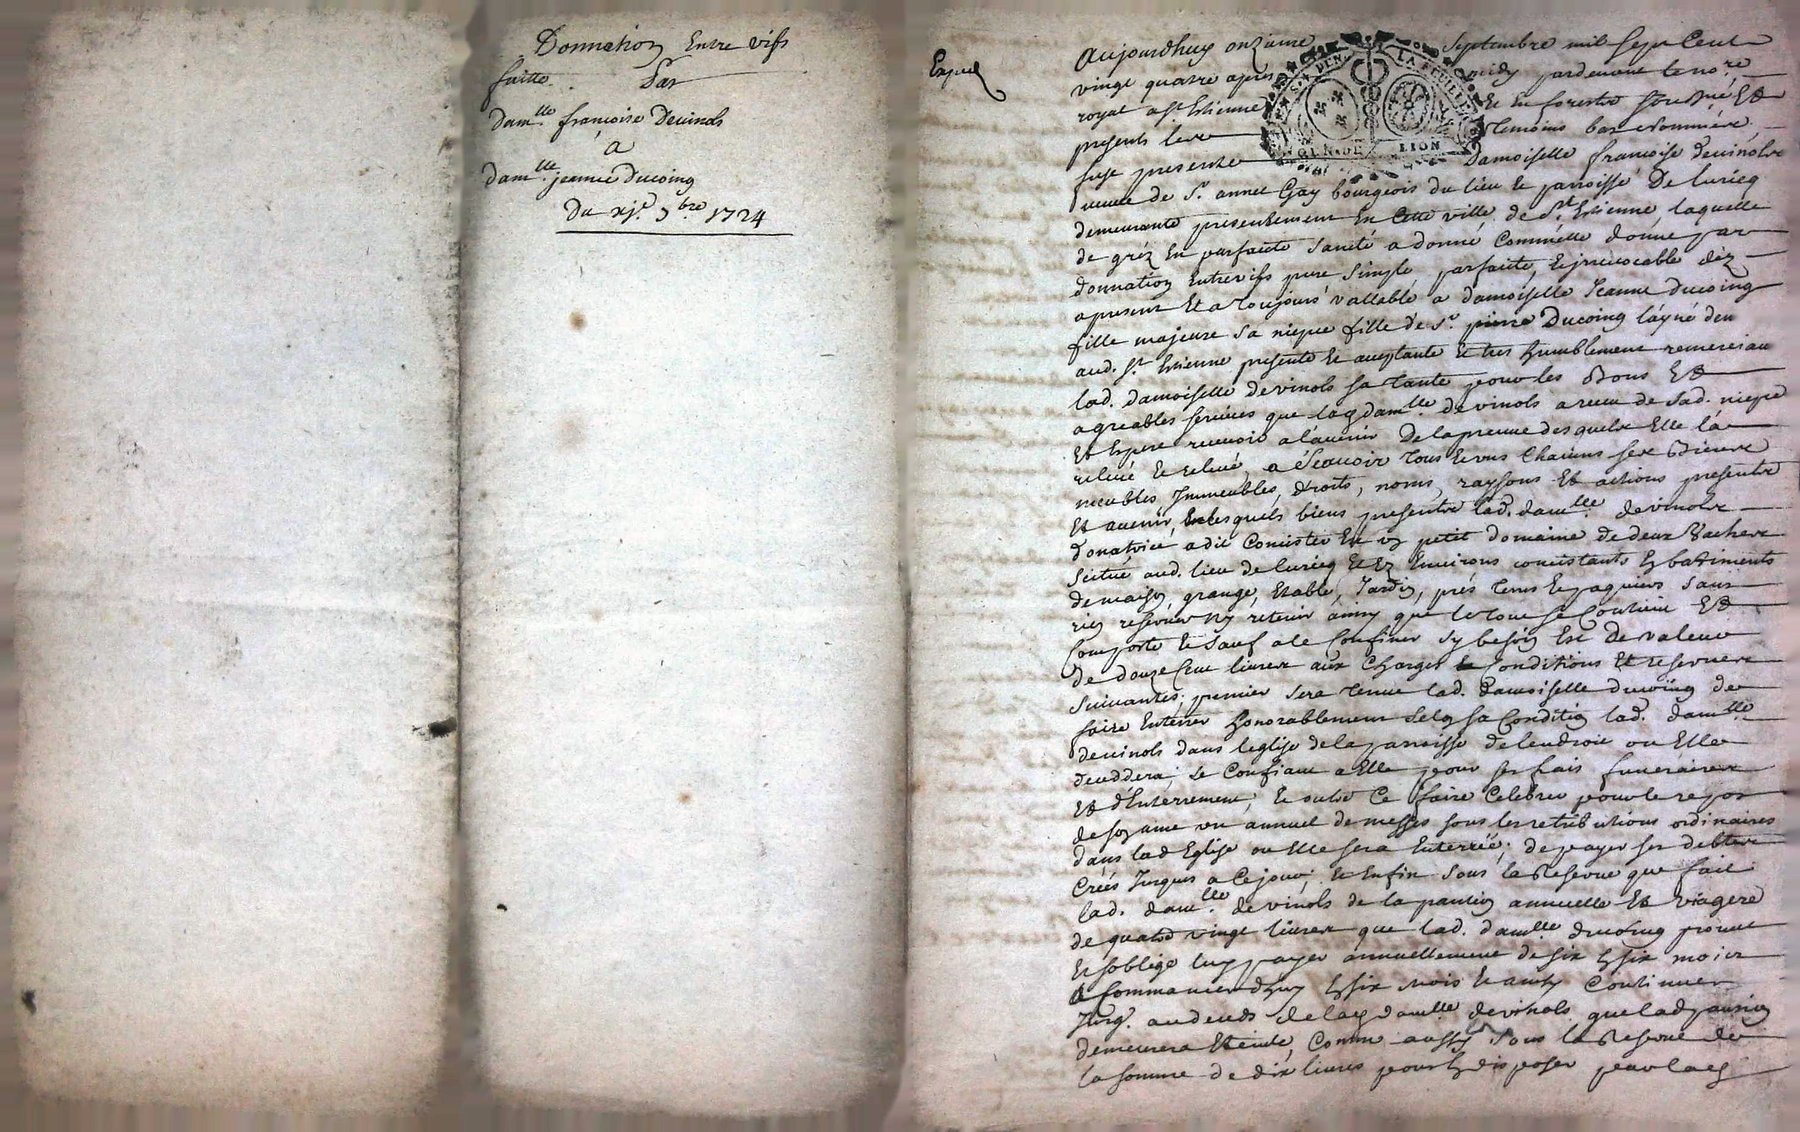 Donnation Entre vifs
faitte Par
dam.lle françoise Devinols
a
dam.lle jeanne Ducoing
Du xj.e 7.bre 1724
Expié
Aujourdhuy onzieme Septembre mil sept Cent
vingt quatre apres midy pardevant le no.re
royal a St Estienne Et en forestz soubné Et
presents les Temoins bas nommés
fust presente damoiselle françoise devinols
veuve de S.r annet Gay bourgeois du lieu et parroisse De luriecq
demeurante presentement En Cette ville de St Estienne, laquelle
de gréz En parfaitte santé a donné Comme elle donne par
donnation Entrevifs pure simple parfaitte, et jrrevocable déz
apresent Et a toujours vallable a damoiselle Jeanne Ducoing
fille majeure sa niepce fille de S.r pierre Ducoing layné dud
aud. St Estienne presente et acceptante Et tres humblement remerciant
lad. damoiselle devinols sa tante pour les Bons Et
agreables services que lad dam.lle devinols a receu de sad. niepce
Et Espere recevoir a l'avenir De la preuve desquels Elle la
relevé et releve, a scavoir tous et uns Chacuns ses Biens
meubles Jmmeubles, droits, noms, raysons Et actions presents
Et avenir, lesquels biens presents lad. dam.lle devinols
donatrice a dit Concister En un petit domaine de deux Vaches
scitué aud. lieu de luriecq Et Ez Environs concistants En batiments
de maison, grange, Etable, Jardin, prés terres Et paquiers sans
rien reserver ny retenir ainsy que le tout se Contient Et
Comporte Et sauf a le Confiner sy besoin Est De valeur
de douze Cent livres aux Charges Conditions Et reserves
suivantes, premier sera tenue lad. damoiselle ducoing de
faire Enterrer honorablement selon sa Condition lad. dam.lle
devinols dans leglise de la parroisse de lendroit ou Elle
deceddera; se Confiant a Elle pour ses frais funeraires
Et d'Enterrement, Et outre Ce faire Celebrer pour le repos
de son ame un annuel de messes sous les retributions ordinaires
dans lad Eglise ou Elle sera Enterrée; de payer ses debtes
Créés Jusques a Ce jour; Et Enfin sous la Reserve que fait
lad. dam.lle devinols de la pantion annuelle Et viagere
de quatre vingt livres que lad. dam.lle ducoing promet
Et soblige luy payer annuellement de six En six mois
a Commancer dhuy En six mois Et ainsy Continuer
Jusq. au deceds de lad dam.lle devinols que lad pansion
demeurera Eteinte, Comme aussy sous la Reserve de
la somme de dix livres pour En disposer par lad